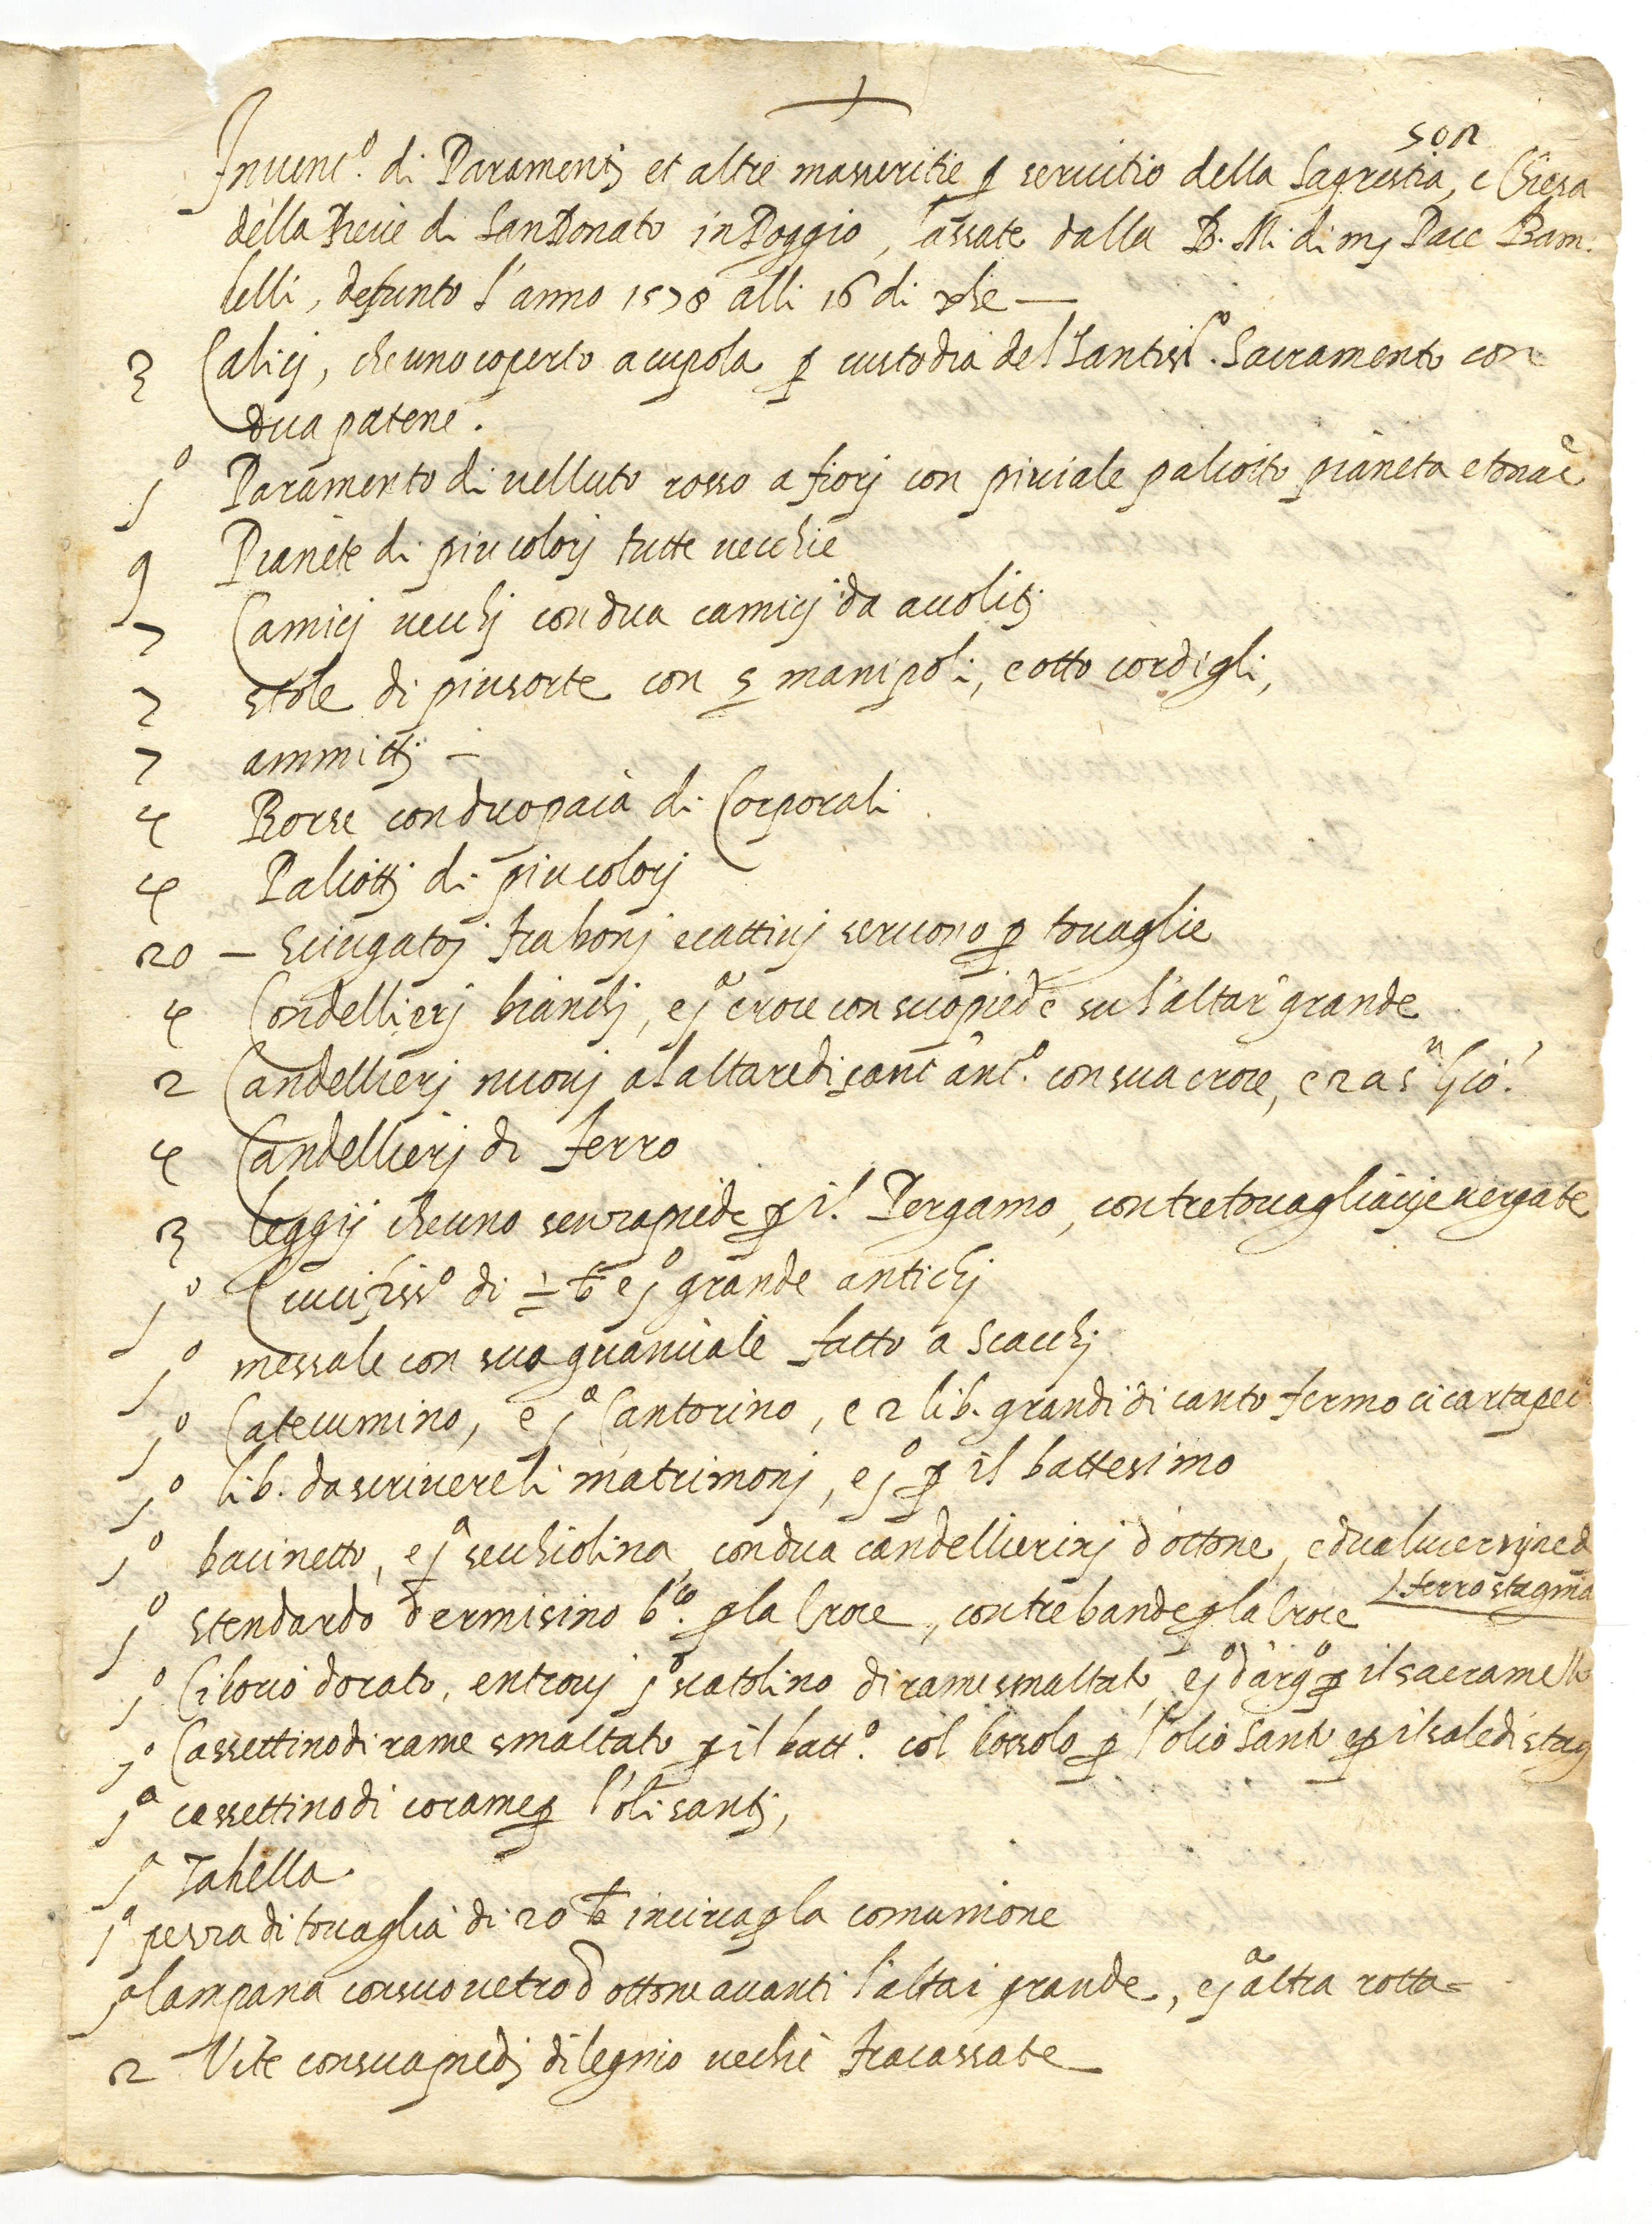 son
Invent.º di Paramentj et altre masseritie ꝑ servitio della Sagrestia, e Chiesa
della Pieve di San Donato in Poggio, lassate dalla B. M. di mſ Pace Bam-
belli, defunto l'anno 1578 alli 16 di xbre —
3 Calicj, che uno coperto a cupola ꝑ custodia del Santiss.º Sacramento con
dua patene.
1º Paramento di velluto rosso a fiorj con piviale paliotto pianeta e tonacˡᵉ
9 Pianete di piu colorj tutte vecchie
7 Camicj vecchj con dua camicj da accolitj
7 stole di piu sorte con 5 manipoli, e otto cordigli,
7 ammittj —
4 Borse con duo paia di Corporali
4 Paliottj di piu colorj
20 — Sciugatoj fra bonj e cattivj servono ꝑ tovaglie
4 Condellierj bianchj, e 1ª croce con suo piede su l'altar grande
2 Candellierj nuovj al altare di sant' Ant.º con sua croce, e 2 a Sⁿ Giõ:
4 Candellierj di ferro
3 leggij che uno senza piede ꝑ il Pergamo, con tre tovagliacije vergate
1º Crucifisso di ½ b̶ e 1º grande antichj
1º messale con suo guanciale fatto a scacchj
1º Catecumino, e 1º Cantorino, e 2 lib. grandi di canto fermo ci cartapec.ª
1º lib. da scrivere li matrimonj, e 1º ꝑ il battesimo
1º bacinetto, e 1ª secchiolina, con dua candellierinj d'ottone, e dua lucernjne d
ferro stagnia
1º stendardo d'ermisino b.ᶜᵒ ꝑ la Croce, con tre bande ꝑ la Croce
1º Ciborio dorato, entrovj 1º scatolino di rame smaltato, e 1º d'arg.º ꝑ il sacramento
1º Cassettino di rame smaltato ꝑ il batt.º col bossolo ꝑ l'olio Santo e ꝑ il sale di stag
1ª cassettino di corame ꝑ l'oli santj,
1ª Tabella
1ª pezza di tovaglia di 20 b̶ incirca ꝑ la comunione
1ª lampana con suo vetro d'ottone avanti l'altar grande, e 1ª altra rotta-
2 Vite con sua piedj di legnio vechie fracassate